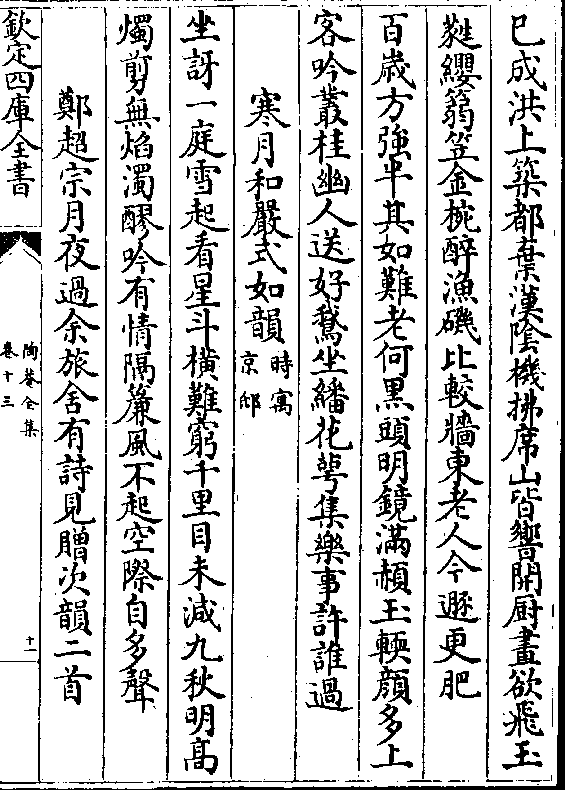 已成洪上築都棄漢陰機拂席山皆響開厨畫欲飛玉
蕤纓篛笠金椀醉漁磯比較牆東老人今遯更肥
百歳方強半其如難老何黒頭明鏡滿頳玉輭顔多上
客吟叢桂幽人送好鵞坐繙花萼集樂事許誰過
寒月和嚴式如韻時寓京邸
坐訝一庭雪起看星斗横難窮千里目未減九秋明高
燭剪無焰濁醪吟有情隔簾風不起空際自多聲
鄭超宗月夜過余旅舍有詩見贈次韻二首
欽定四庫全書
陶菴全集
卷十三
十一